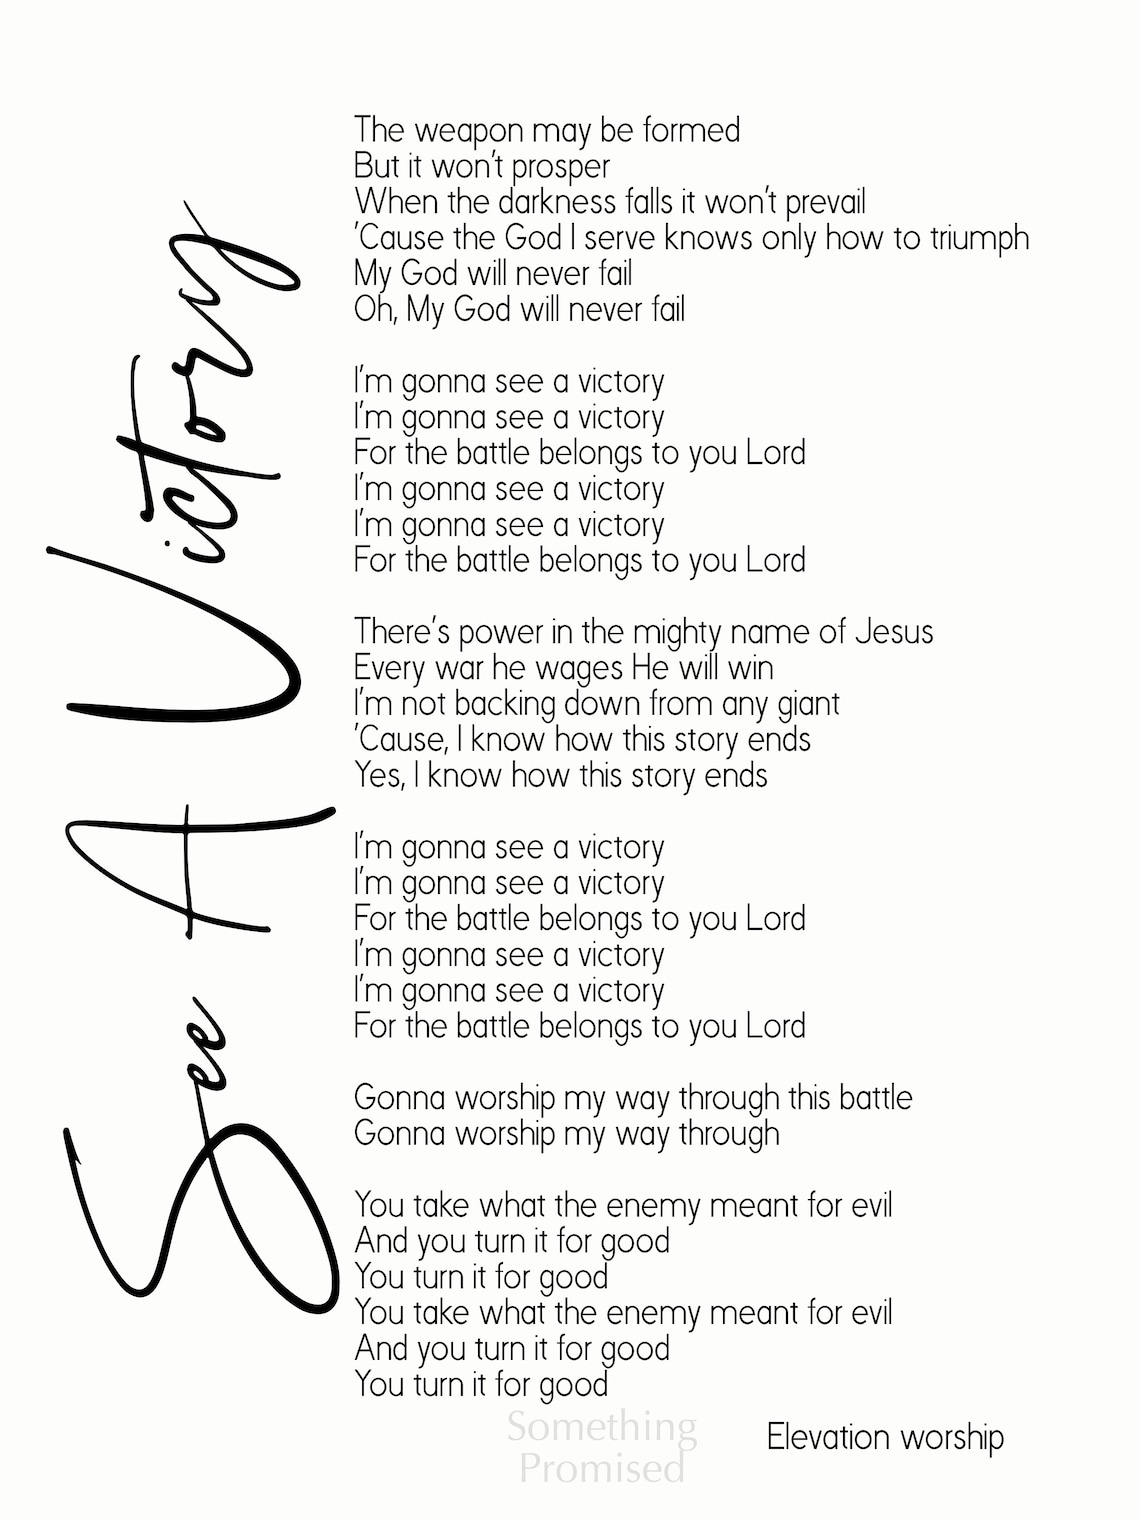 See A Victory
The weapon may be formed
But it won't prosper
When the darkness falls it won't prevail
'Cause the God I serve knows only how to triumph
My God will never fail
Oh, My God will never fail
I'm gonna see a victory
I'm gonna see a victory
For the battle belongs to you Lord
I'm gonna see a victory
I'm gonna see a victory
For the battle belongs to you Lord
There's power in the mighty name of Jesus
Every war he wages He will win
I'm not backing down from any giant
'Cause, I know how this story ends
Yes, I know how this story ends
I'm gonna see a victory
I'm gonna see a victory
For the battle belongs to you Lord
I'm gonna see a victory
I'm gonna see a victory
For the battle belongs to you Lord
Gonna worship my way through this battle
Gonna worship my way through
You take what the enemy meant for evil
And you turn it for good
You turn it for good
You take what the enemy meant for evil
And you turn it for good
You turn it for good
Something
Promised
Elevation worship